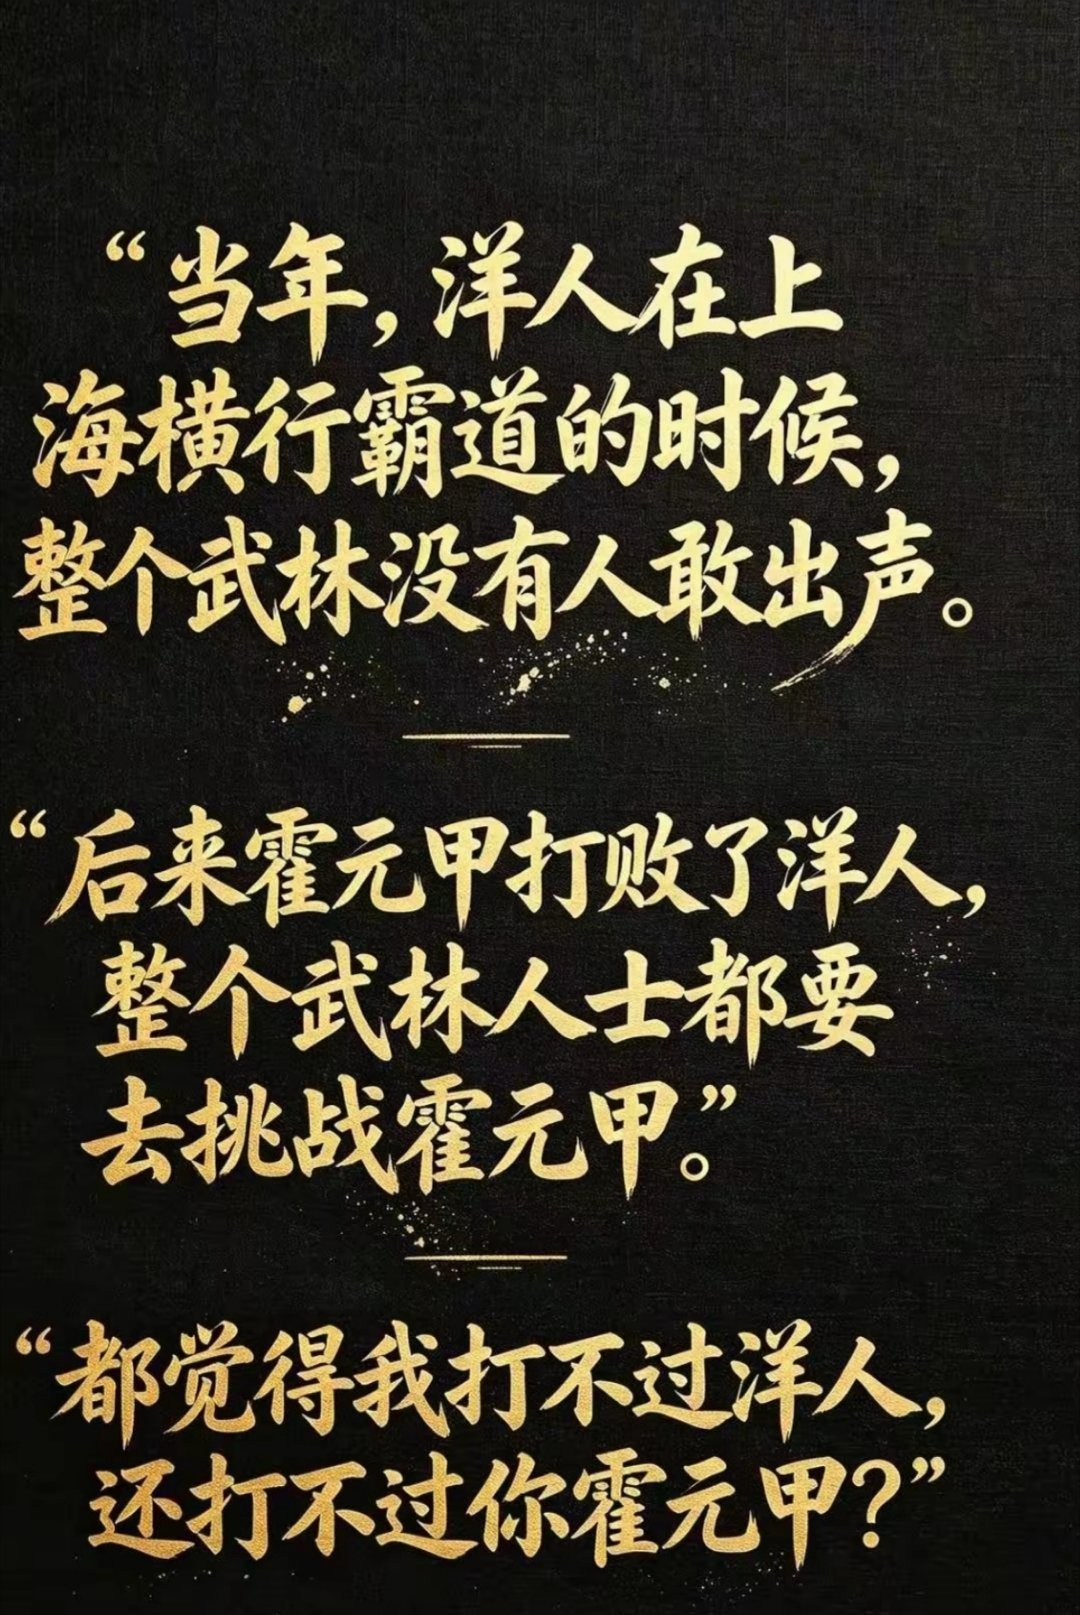 “当年，洋人在上
海横行霸道的时候，
整个武林没有人敢出声。
“后来霍元甲打败了洋人，
整个武林人士都要
去挑战霍元甲。”
“都觉得我打不过洋人，
还打不过你霍元甲？”